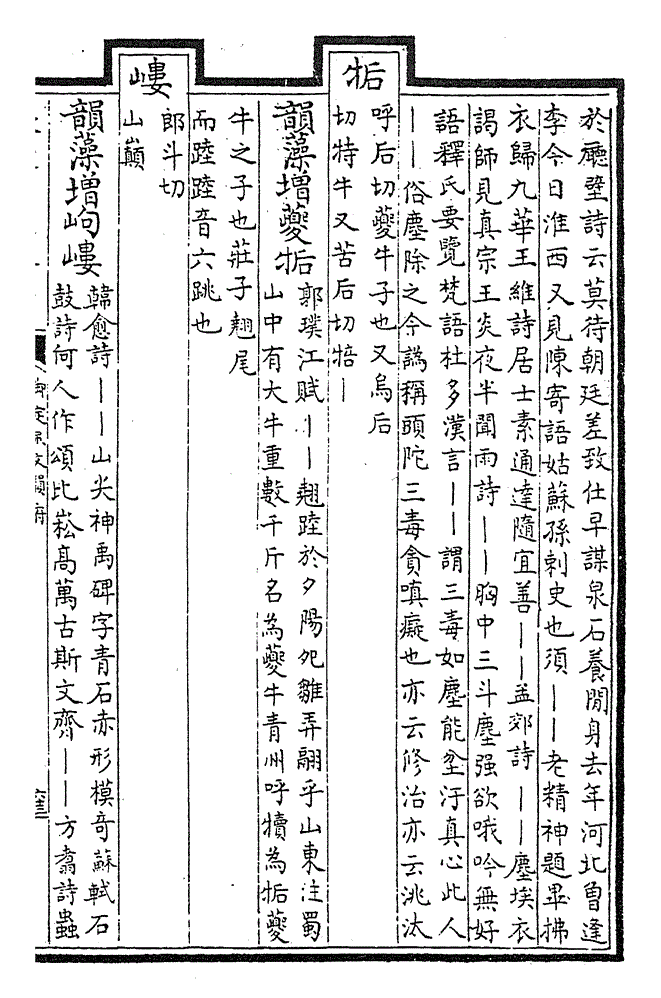 於廳壁詩云莫待朝廷差致仕早謀泉石養閒身去年河北曾逢
李今日淮西又見陳寄語姑蘇孫刺史也須丨丨老精神題畢拂
衣歸九華王維詩居士素通達隨宜善丨丨孟郊詩丨丨塵埃衣
謁師見真宗王炎夜半聞雨詩丨丨胸中三斗塵强欲哦吟無好
語釋氏要覽梵語杜多漢言丨丨謂三毒如塵能坌汙真心此人
丨丨俗塵除之今譌稱頭陀三毒貪嗔癡也亦云修治亦云洮汰
㸸
呼后切夔牛子也又烏后
切特牛又苦后切丨
韻藻增夔㸸
郭璞江賦丨丨翹踛於夕陽夗雛弄翮乎山東注蜀
山中有大牛重數千斤名為夔牛青州呼犢為㸸夔
牛之子也莊子翹尾
而踛踛音六跳也
嶁
郎斗切
山巔
韻藻增岣嶁
韓愈詩丨丨山尖神禹碑字青石赤形模奇蘇軾石
鼓詩何人作頌比崧高萬古斯文齊丨丨方翥詩蟲